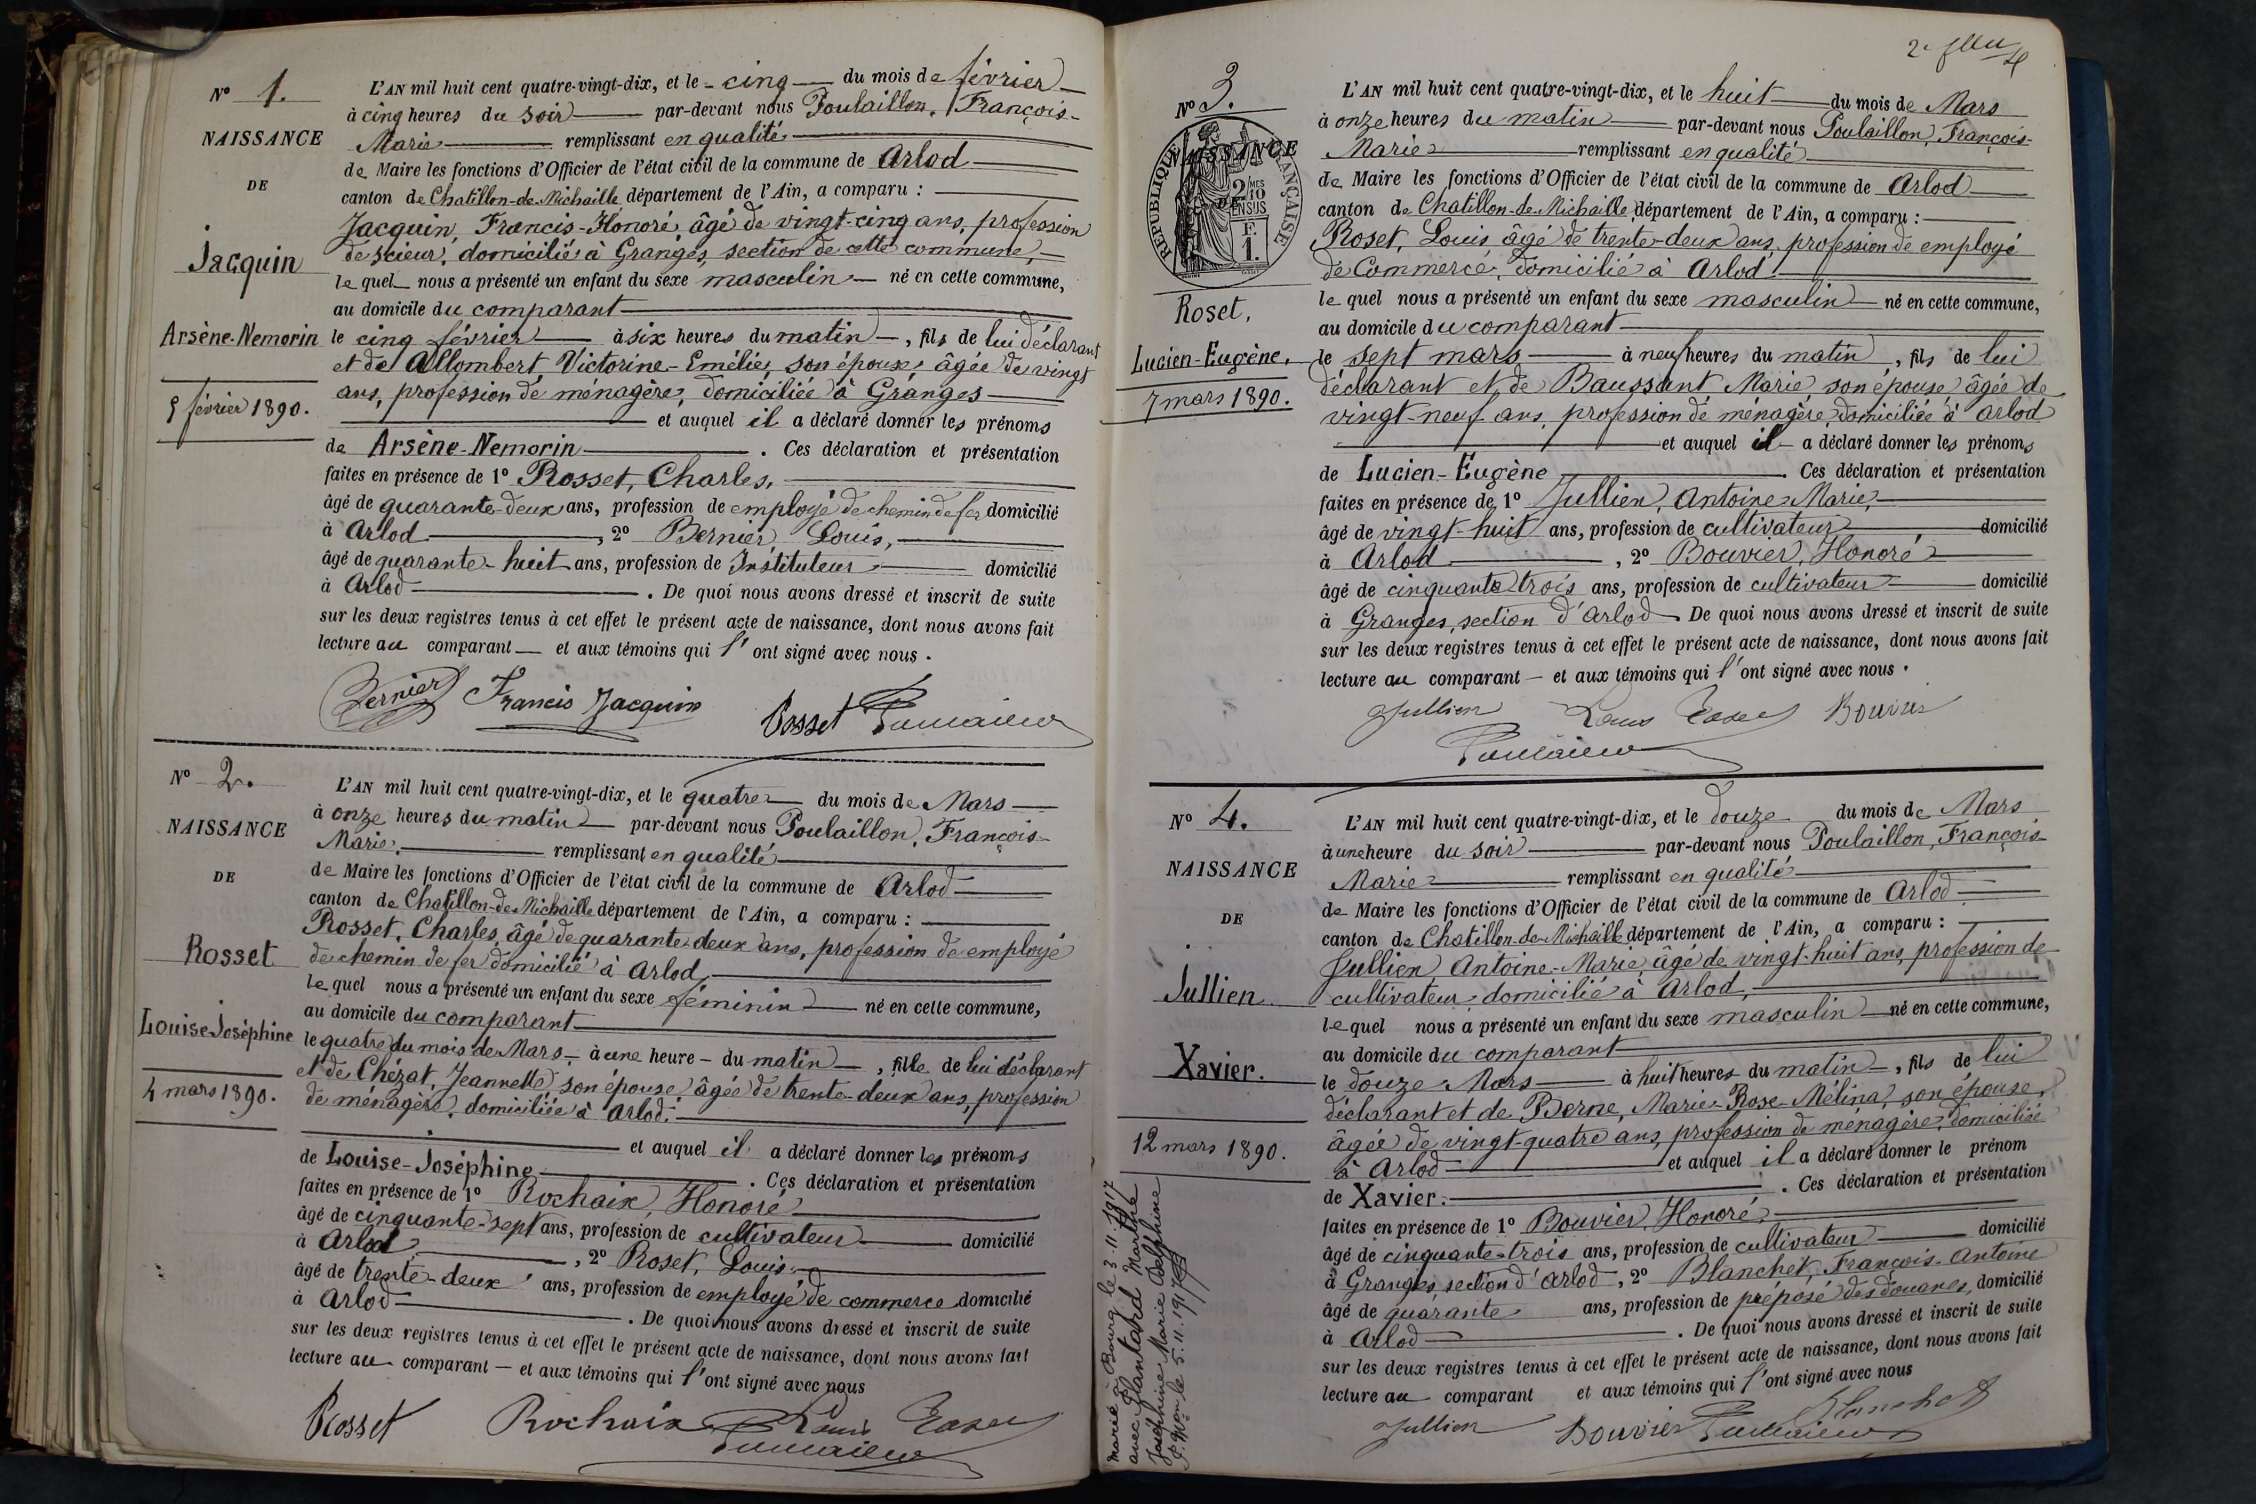 N° 1.
NAISSANCE
DE
Jacquin
Arsène-Nemorin
5 février 1890.
L'AN mil huit cent quatre-vingt-dix, et le cinq du mois de février
à cinq heures du soir par-devant nous Poulaillon, François-
Marie remplissant en qualité
de Maire les fonctions d'Officier de l'état civil de la commune de Arlod
canton de Chatillon-de-Michaille département de l'Ain, a comparu :
Jacquin, Francis-Honoré âgé de vingt-cinq ans, profession
de scieur, domicilié à Granges, section de cette commune,
lequel nous a présenté un enfant du sexe masculin né en cette commune,
au domicile du comparant
le cinq février à six heures du matin, fils de lui déclarant
et de Allombert Victorine-Emélie, son épouse âgée de vingt
ans, profession de ménagère, domiciliée à Granges
et auquel il a déclaré donner les prénoms
de Arsène-Nemorin. Ces déclaration et présentation
faites en présence de 1° Rosset, Charles,
âgé de quarante-deux ans, profession de employé de chemin de fer domicilié
à Arlod, 2° Bernier Louis,
âgé de quarante-huit ans, profession de Instituteur domicilié
à Arlod. De quoi nous avons dressé et inscrit de suite
sur les deux registres tenus à cet effet le présent acte de naissance, dont nous avons fait
lecture au comparant et aux témoins qui l'ont signé avec nous.
Bernier Francis Jacquin Rosset Poulaillon
N° 2.
NAISSANCE
DE
Rosset
Louise Joséphine
4 mars 1890.
L'AN mil huit cent quatre-vingt-dix, et le quatre du mois de Mars
à onze heures du matin par-devant nous Poulaillon, François-
Marie remplissant en qualité
de Maire les fonctions d'Officier de l'état civil de la commune de Arlod
canton de Chatillon-de-Michaille département de l'Ain, a comparu :
Rosset, Charles, âgé de quarante-deux ans, profession de employé
de chemin de fer domicilié à Arlod,
lequel nous a présenté un enfant du sexe féminin né en cette commune,
au domicile du comparant
le quatre du mois de Mars à une heure du matin, fille de lui déclarant
et de Chézat, Jeannette son épouse âgée de trente-deux ans, profession
de ménagère, domiciliée à Arlod.
et auquel il a déclaré donner les prénoms
de Louise-Joséphine. Ces déclaration et présentation
faites en présence de 1° Rochaix, Honoré
âgé de cinquante-sept ans, profession de cultivateur domicilié
à Arlod, 2° Roset, Louis
âgé de trente-deux ans, profession de employé de commerce domicilié
à Arlod. De quoi nous avons dressé et inscrit de suite
sur les deux registres tenus à cet effet le présent acte de naissance, dont nous avons fait
lecture au comparant et aux témoins qui l'ont signé avec nous
Rosset Rochaix Louis Roset
Poulaillon
N° 3.
NAISSANCE
DE
RÉPUBLIQUE FRANÇAISE
2/10
EN SUS
1 F.
Roset,
Lucien-Eugène,
7 mars 1890.
L'AN mil huit cent quatre-vingt-dix, et le huit du mois de Mars
à onze heures du matin par-devant nous Poulaillon, François-
Marie remplissant en qualité
de Maire les fonctions d'Officier de l'état civil de la commune de Arlod
canton de Chatillon-de-Michaille, département de l'Ain, a comparu :
Roset, Louis âgé de trente-deux ans profession de employé
de Commerce, domicilié à Arlod
lequel nous a présenté un enfant du sexe masculin né en cette commune,
au domicile du comparant
le sept mars à neuf heures du matin, fils de lui
déclarant et de Baussant Marie son épouse âgée de
vingt-neuf ans, profession de ménagère domiciliée à Arlod
et auquel il a déclaré donner les prénoms
de Lucien-Eugène. Ces déclaration et présentation
faites en présence de 1° Jullien, Antoine-Marie,
âgé de vingt-huit ans, profession de cultivateur domicilié
à Arlod, 2° Bouvier, Honoré
âgé de cinquante-trois ans, profession de cultivateur domicilié
à Granges, section d'Arlod De quoi nous avons dressé et inscrit de suite
sur les deux registres tenus à cet effet le présent acte de naissance, dont nous avons fait
lecture au comparant et aux témoins qui l'ont signé avec nous.
Jullien Louis Roset Bouvier
Poulaillon
N° 4.
NAISSANCE
DE
Jullien
Xavier.
12 mars 1890.
marié à Bourg le 3-11-1917
avec Plantard Marthe
Joséphine Marie Delphine
le 5.11.1917
L'AN mil huit cent quatre-vingt-dix, et le douze du mois de Mars
à une heure du soir par-devant nous Poulaillon, François-
Marie remplissant en qualité
de Maire les fonctions d'Officier de l'état civil de la commune de Arlod
canton de Chatillon-de-Michaille département de l'Ain, a comparu :
Jullien Antoine-Marie, âgé de vingt-huit ans, profession de
cultivateur domicilié à Arlod,
lequel nous a présenté un enfant du sexe masculin né en cette commune,
au domicile du comparant
le douze Mars à huit heures du matin, fils de lui
déclarant et de Berne, Marie-Rose-Mélina, son épouse,
âgée de vingt-quatre ans, profession de ménagère, domiciliée
à Arlod et auquel il a déclaré donner le prénom
de Xavier. Ces déclaration et présentation
faites en présence de 1° Bouvier, Honoré,
âgé de cinquante-trois ans, profession de cultivateur domicilié
à Granges, section d'Arlod, 2° Blanchet, François-Antoine
âgé de quarante ans, profession de préposé des douanes, domicilié
à Arlod. De quoi nous avons dressé et inscrit de suite
sur les deux registres tenus à cet effet le présent acte de naissance, dont nous avons fait
lecture au comparant et aux témoins qui l'ont signé avec nous
Jullien Bouvier Poulaillon Blanchet